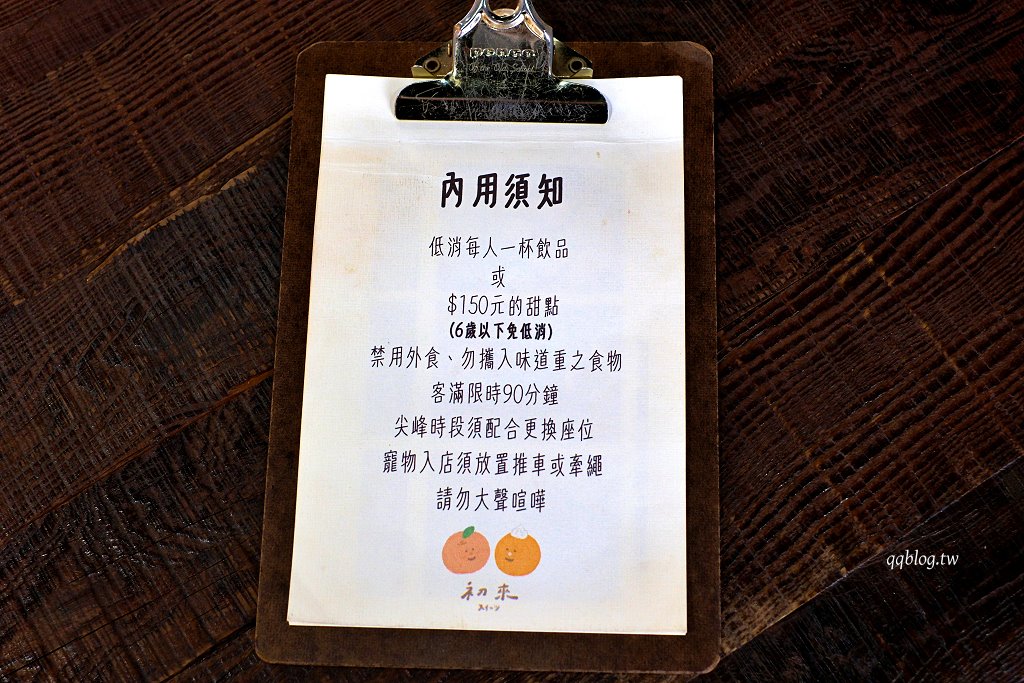 內用須知
低消每人一杯飲品
或
$150元的甜點
(6歲以下免低消)
禁用外食、勿攜入味道重之食物
客滿限時90分鐘
尖峰時段須配合更換座位
寵物入店須放置推車或牽繩
請勿大聲喧嘩
初來
スイーツ
qqblog.tw